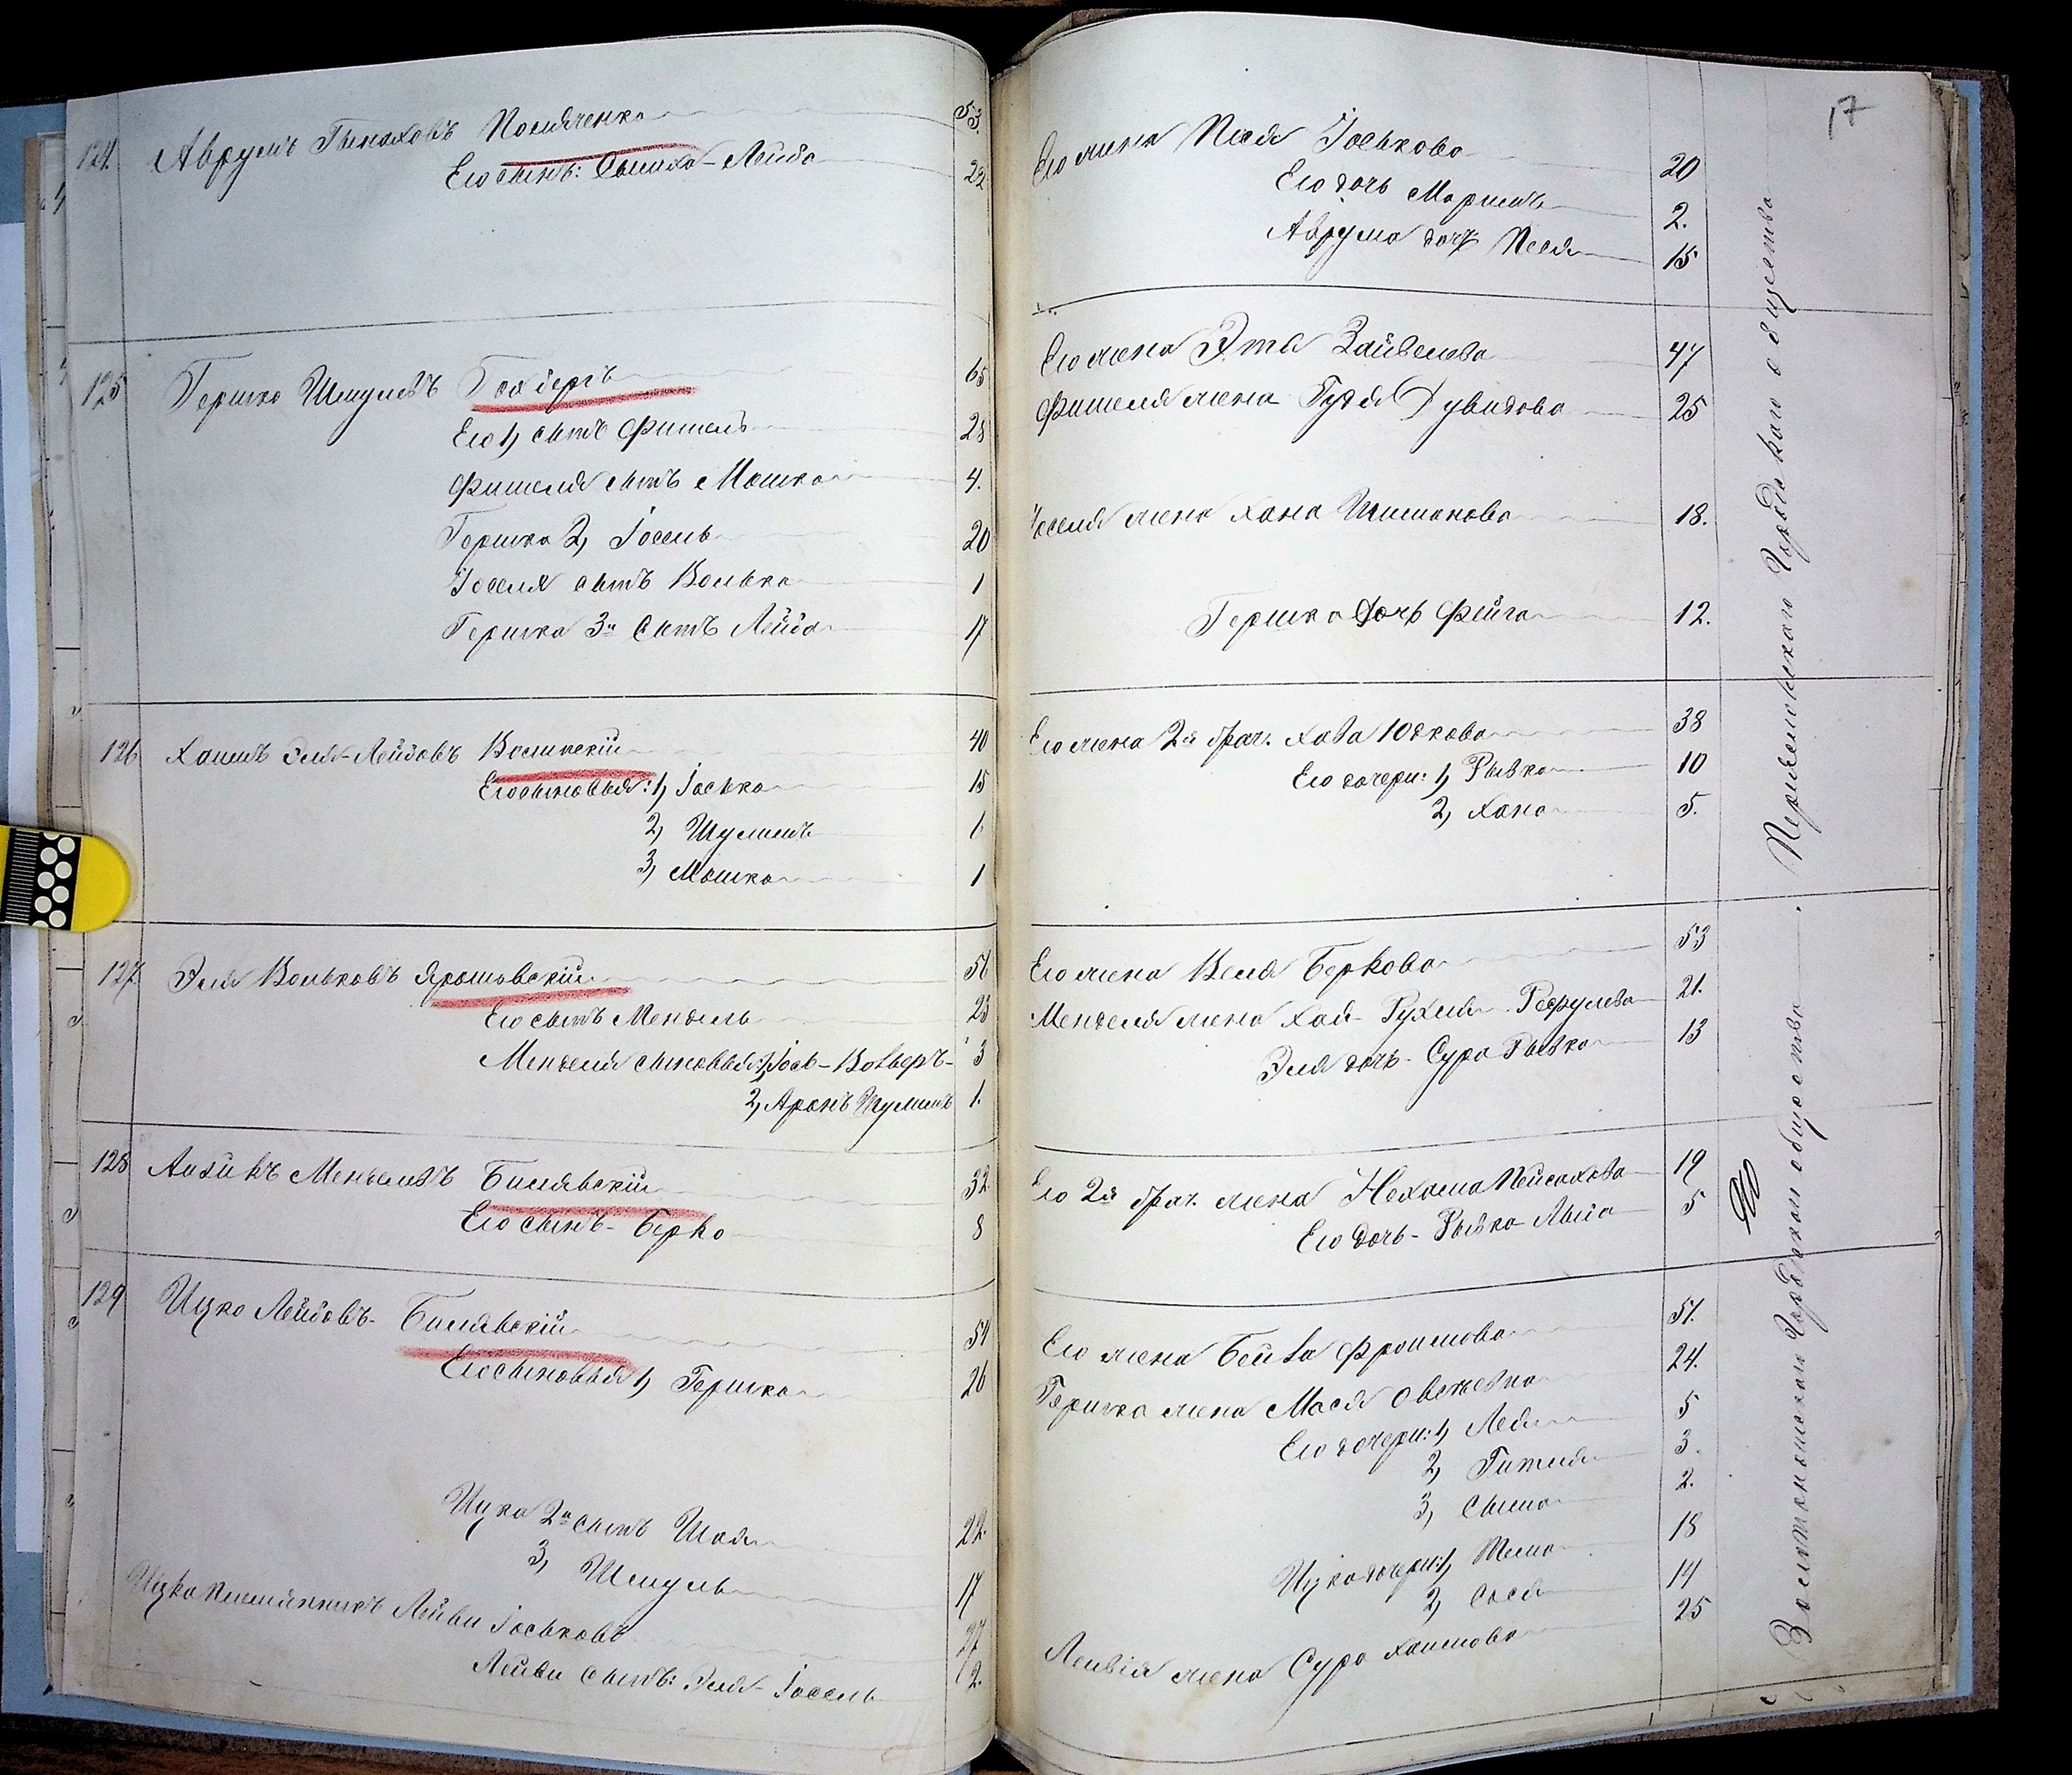 124. Аврумъ Пинаховъ 53.
Его сынъ: Сымха-Лейба 22
125 Гершко Шмулевъ Голбергъ 65
Его 1, сынъ Фишель 28
Фишеля сынъ Мошко 4.
Гершка 2, Іосель 20
Іоселя сынъ Волько 1
Гершка 3й сынъ Лейба 17
126 Хаимъ Эля-Лейбовъ Волинскій 40
Его сыновья: 1, Іосько 15
2, Шулимъ 1.
3, Мошко 1
127. Эля Вольковъ Ярошевскій 56
Его сынъ Мендель 23
Менделя сыновья: 1, Іось-Вольверъ 3
2, Аронъ Шулимъ 1.
128 Айзикъ Менделевъ Билявскій 32
Его сынъ - Берко 8
129 Ицко Лейбовъ Билявскій 51
Его сыновья 1, Гершко 26
Ицка 2й сынъ Шая 22.
3, Шмуль 17
Ицка племянникъ Лейви Іоськовъ 27
Лейви сынъ: Эля-Іосель 2.
17
Его жена Песя Іоськова 20
Его дочь Маріимъ 2.
Аврума дочь Песя 15
Его жена Эта Зайвелева 47
Фишеля жена Гудя Дувидова 25
Іоселя жена Хана Шимонова 18.
Гершка дочь Фейга 12.
Его жена 2й брач. Хава Юдкова 38
Его дочери: 1, Рывка 10
2, Хана 5.
Его жена Веля Беркова 53
Менделя жена Хая-Рухля 21.
Эля дочь - Сура Рывка 13
Его 2й брач. жена Нехама Пейсахова 19
Его дочь - Рывка 5
Его жена Бейла Фроимова 51.
Гершка жена Мася Овшіевна 24.
Его дочери: 1, Лея 5
2, Гитля 3.
3, Сыма 2.
Ицка дочери: 1, 18
2, Сося 14
Лейвія жена Сура Хаимова 25
Золотоношском городском обществе. Переяловскаго Городскаго общества